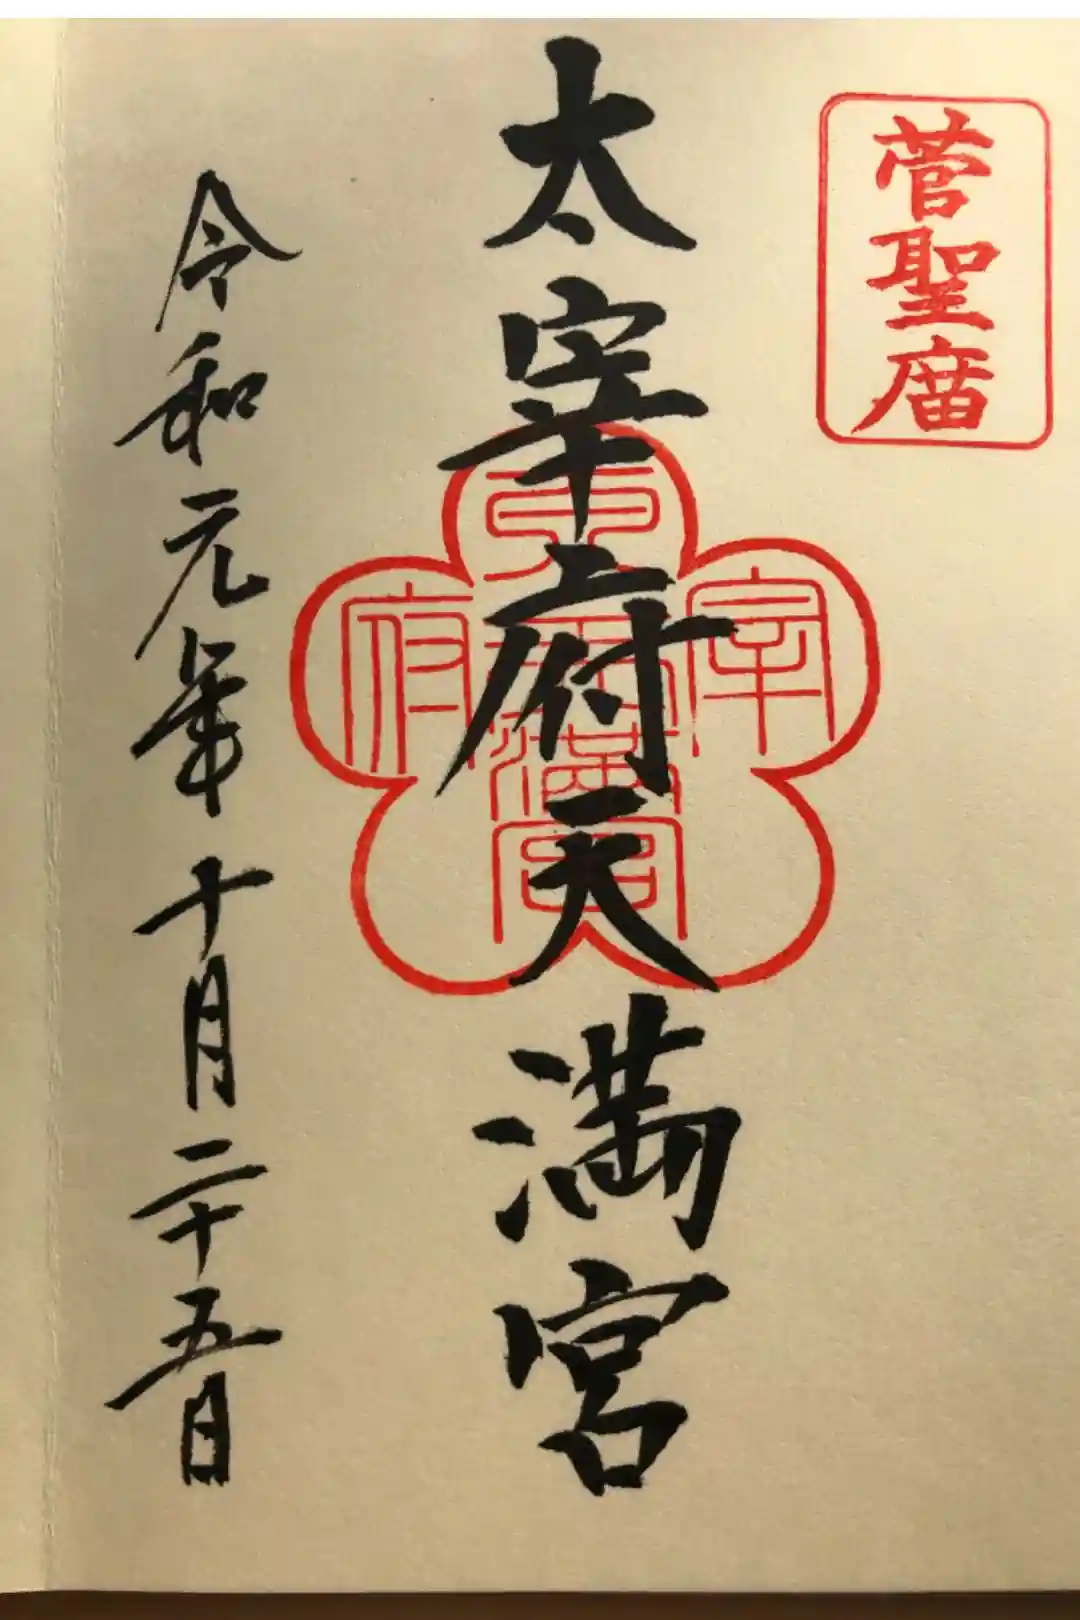 菅聖庿
太宰府天満宮
太宰府天満宮
令和元年十月二十五日